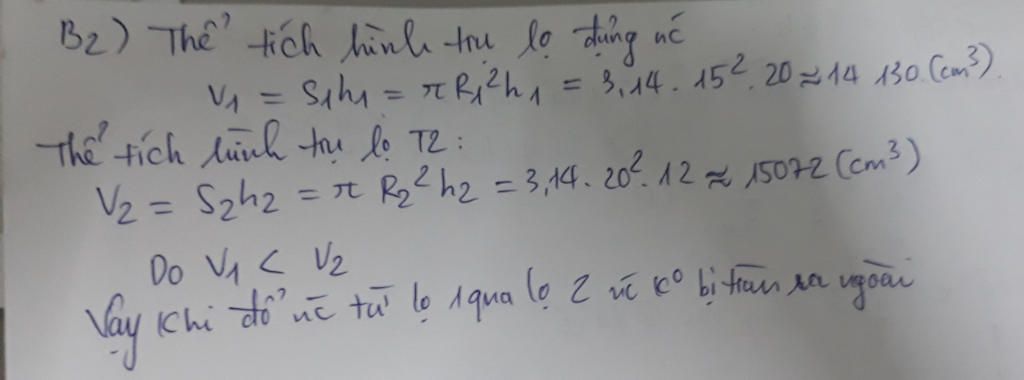 B2) Thể tích hình trụ lọ đựng nc
V₁ = S₁h₁ = πR₁²h₁ = 3,14 . 15² . 20 ≈ 14 130 (cm³).
Thể tích hình trụ lọ T2 :
V₂ = S₂h₂ = π R₂²h₂ = 3,14 . 20² . 12 ≈ 15072 (cm³)
Do V₁ < V₂
Vậy khi đổ nc từ lọ 1 qua lọ 2 nc k⁰ bị tràn ra ngoài